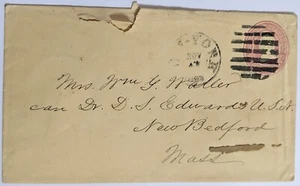 YORK
NOV
Mrs. Wm G. Waller
care Dr. D. S. Edwards U.S.N.
New Bedford
Mass